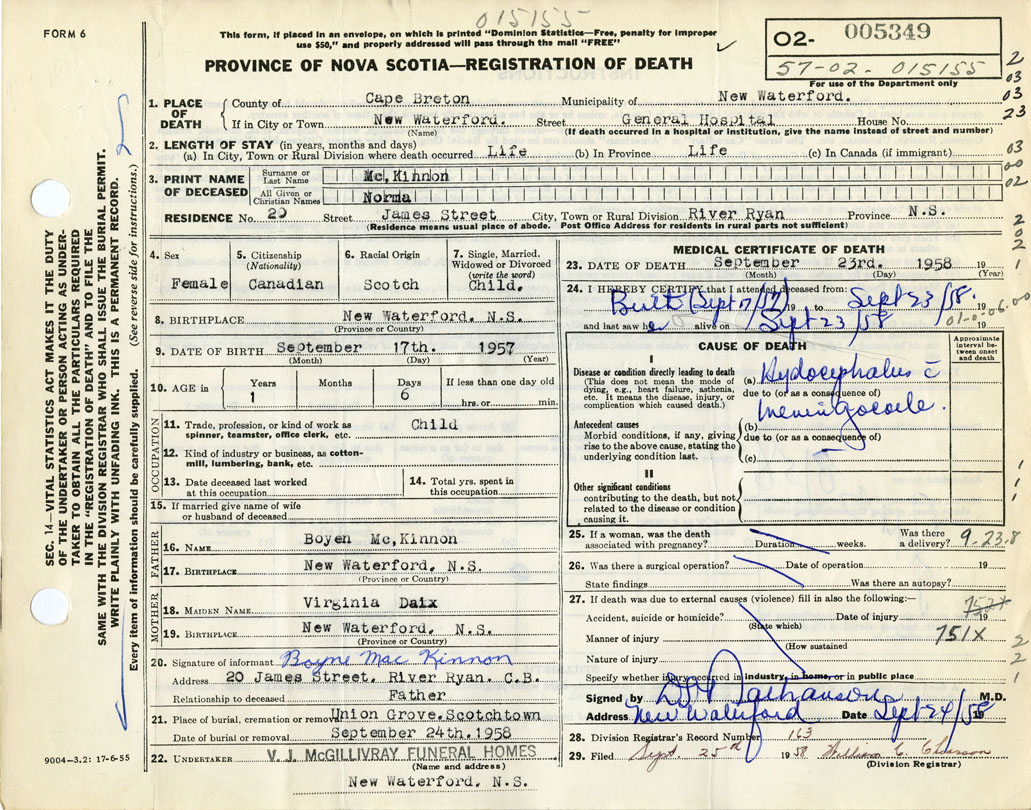 015155
FORM 6
This form, if placed in an envelope, on which is printed "Dominion Statistics—Free, penalty for improper
use $50," and properly addressed will pass through the mail "FREE"
PROVINCE OF NOVA SCOTIA—REGISTRATION OF DEATH
O2- 005349
57-02-015155
For use of the Department only
2
03
03
23
03
00
02
2
0
2
1
SEC. 14—VITAL STATISTICS ACT MAKES IT THE DUTY
OF THE UNDERTAKER OR PERSON ACTING AS UNDER-
TAKER TO OBTAIN ALL THE PARTICULARS REQUIRED
IN THE "REGISTRATION OF DEATH" AND TO FILE THE
SAME WITH THE DIVISION REGISTRAR WHO SHALL ISSUE THE BURIAL PERMIT.
WRITE PLAINLY WITH UNFADING INK. THIS IS A PERMANENT RECORD.
Every item of information should be carefully supplied. (See reverse side for instructions.)
1. PLACE OF DEATH
County of Cape Breton Municipality of New Waterford.
If in City or Town New Waterford. Street General Hospital House No.
(Name) (If death occurred in a hospital or institution, give the name instead of street and number)
2. LENGTH OF STAY (in years, months and days)
(a) In City, Town or Rural Division where death occurred Life (b) In Province Life (c) In Canada (if immigrant)
3. PRINT NAME OF DECEASED
Surname or Last Name Mc,Kinnon
All Given or Christian Names Norma
RESIDENCE No. 20 Street James Street City, Town or Rural Division River Ryan Province N.S.
(Residence means usual place of abode. Post Office Address for residents in rural parts not sufficient)
4. Sex
Female
5. Citizenship
(Nationality)
Canadian
6. Racial Origin
Scotch
7. Single, Married,
Widowed or Divorced
(write the word)
Child.
8. BIRTHPLACE New Waterford, N.S.
(Province or Country)
9. DATE OF BIRTH September 17th. 1957
(Month) (Day) (Year)
10. AGE in
Years Months Days If less than one day old
1 6 hrs. or min.
OCCUPATION
11. Trade, profession, or kind of work as Child
spinner, teamster, office clerk, etc.
12. Kind of industry or business, as cotton-
mill, lumbering, bank, etc.
13. Date deceased last worked
at this occupation
14. Total yrs. spent in
this occupation
15. If married give name of wife
or husband of deceased
FATHER
16. NAME Boyen Mc,Kinnon
17. BIRTHPLACE New Waterford, N.S.
(Province or Country)
MOTHER
18. MAIDEN NAME Virginia Daix
19. BIRTHPLACE New Waterford, N.S.
(Province or Country)
20. Signature of informant Boyne Mac Kinnon
Address 20 James Street, River Ryan. C.B.
Relationship to deceased Father
21. Place of burial, cremation or removal Union Grove.Scotchtown
Date of burial or removal September 24th.1958
22. UNDERTAKER V. J. McGILLIVRAY FUNERAL HOMES
(Name and address)
New Waterford, N.S.
9004—3.2: 17-6-55
MEDICAL CERTIFICATE OF DEATH
23. DATE OF DEATH September 23rd. 1958 19
(Month) (Day) (Year)
24. I HEREBY CERTIFY that I attended deceased from:
Birth Sept 17/57 19 to Sept 23/58. 19
and last saw h er alive on Sept 23/58 19
01-0-06.00
CAUSE OF DEATH
Approximate
interval be-
tween onset
and death
I
Disease or condition directly leading to death
(This does not mean the mode of
dying, e.g., heart failure, asthenia,
etc. It means the disease, injury, or
complication which caused death.)
(a) Hydocephalus c̄
due to (or as a consequence of)
meningocele.
Antecedent causes
Morbid conditions, if any, giving
rise to the above cause, stating the
underlying condition last.
(b)
due to (or as a consequence of)
(c)
II
Other significant conditions
contributing to the death, but not
related to the disease or condition
causing it.
1
1
1
25. If a woman, was the death
associated with pregnancy? Duration weeks. Was there
a delivery? 9.23.8
26. Was there a surgical operation? Date of operation 19
State findings Was there an autopsy?
27. If death was due to external causes (violence) fill in also the following:—
Accident, suicide or homicide? Date of injury 19
(State which)
Manner of injury 751X
(How sustained
Nature of injury
Specify whether injury occurred in industry, in home, or in public place
2
2
1
Signed by M.D.
Address New Waterford Date Sept 24/58 19
28. Division Registrar's Record Number 163
29. Filed Sept. 25th 1958 William C.
(Division Registrar)